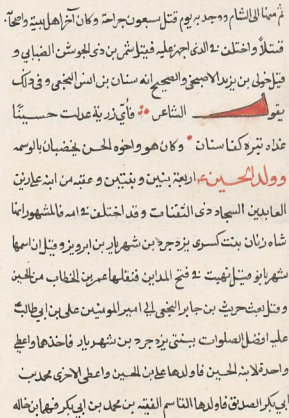 ثم منها الى الشام ووجد به يوم قتل سبعون جراحة وكان آخر اهل بيته واصحابه
قتلا واختلف في الذى اجهز عليه فقيل شمر بن ذى الجوشن الضبابي و
قيل خولى بن يزيد الاصبحى والصحيح انه سنان بن انس النخعى وفى ذلك
يقول الشاعر فاى رزية عدلت حسينا
غداة تبره كفا سنان وكان هو واخوه الحسن يخضبان بالوسمه
وولد الحسين اربعة بنين وبنتين وعقبه من ابنه على زين
العابدين السجاد ذى الثفنات وقد اختلف فى امه فالمشهور انها
شاه زنان بنت كسرى يزدجرد بن شهريار بن ابرويز وقيل ان اسمها
شهربانو قيل نهبت فى فتح المداين فنفلها عمر بن الخطاب من الحسين
وقيل بعث حريث بن جابر النخعى الى امير المومنين على بن ابى طالب
عليه افضل الصلوات ببنتى يزدجرد بن شهريار فاخذهما واعطى
واحدة لابنه الحسين فاولدها على بن الحسين واعطى الاخرى محمد بن
ابى بكر الصديق فاولدها القاسم الفقيه بن محمد بن ابى بكر فهما ابنا خاله